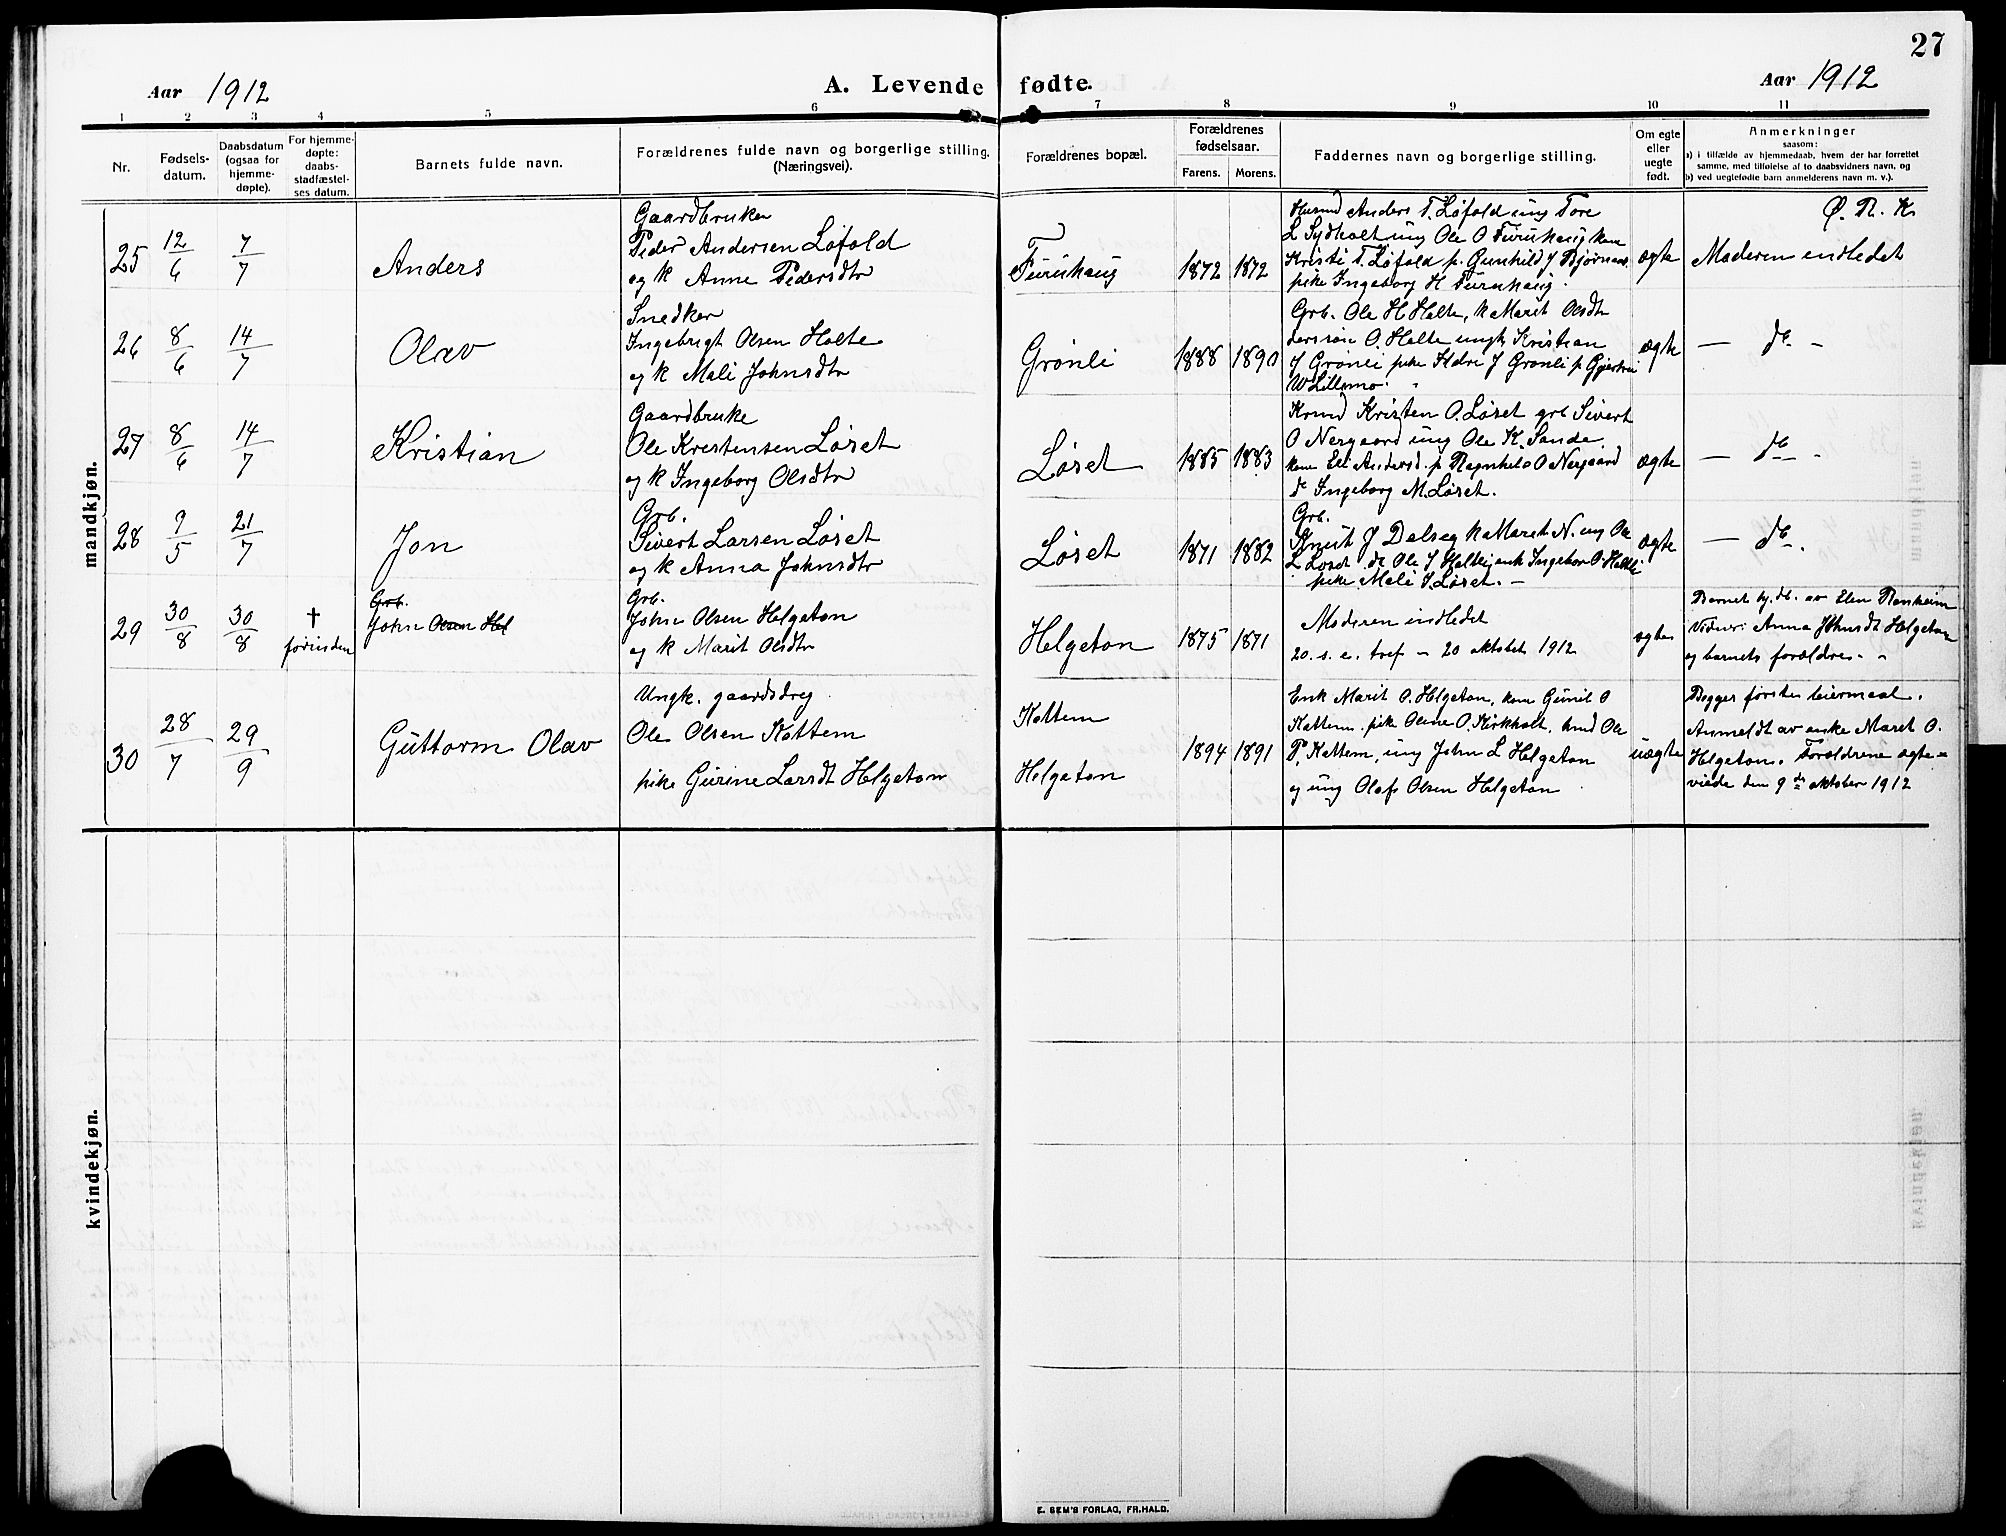 27
Aar 1912
A. Levende fødte.
Aar 1912
1 2 3 4 5 6 7 8 9 10 11
Nr.
Fødsels-
datum.
Daabsdatum
(ogsaa for
hjemme-
døpte).
For hjemme-
døpte:
daabs-
stadfæstel-
ses datum.
Barnets fulde navn.
Forældrenes fulde navn og borgerlige stilling.
(Næringsvei).
Forældrenes bopæl.
Forældrenes
fødselsaar.
Farens. Morens.
Faddernes navn og borgerlige stilling.
Om egte
eller
uegte
født.
Anmerkninger
saasom:
a) i tilfælde av hjemmedaab, hvem der har forrettet
samme, med tilføielse af to daabsvidners navn, og
b) ved uegtefødte barn anmelderens navn m. v.).
mandkjøn.
25
12/6
7/7
Anders
Gaardbruker
Peder Andersen Løfald
og k Anne Pedersdtr
Furuhaug
1872 1872
Husmd Anders T. Løfald ung Tore
L Sydhalt ung Ole O Furuhaug kone
Kristi T. Løfald p. Gunhild J
pike Ingeborg H Furuhaug.
egte
Ø. R. K.
Moderen indledet
26
8/6
14/7
Olav
Snedker
Ingebrigt Olsen Holte
og k Mali Johnsdtr
Grønli
1888 1890
Grb. Ole H Halte, k Marit Olsdtr
O. Halte ungk Kristian
J Grønli pike J Grønli p
W Lillemo.
ægte
— do. -
27
8/6
14/7
Kristian
Gaardbruke
Ole Kristensen Løset
og k Ingeborg Olsdtr
Løset
1885 1883
Kristen O. Løset grb Sivert
O Nergaard ung Ole K. Sande
kone Eli Andersd. p Ragnhild O Nergaard
do Ingeborg M. Løset.
ægte
— do -
28
9/5
21/7
Jon
Grb.
Sivert Larsen Løset
og k Anna Johnsdtr
Løset
1871 1882
Grb.
Knut J Dalseg k Maret N. ung Ole
L Løset do Ole J enk Ingebor O
pike Mali J. Løset. -
ægte
— do.
29
30/8
30/8
†
forinden
Grb.
John Olsen Hel
Grb.
John Olsen Helgeton
og k Marit Olsdtr
Helgeton
1875 1871
Moderen indledet
20. s. e. tref - 20 oktober 1912
egte
Barnet hj. db. av Elen Renheim
Vidner: Anna Johnsdt Helgeton
og barnets forældre. -
30
28/7
29/9
Guttorm Olav
Ungk. gaardsdreg
Ole Olsen Kattem
pike Gurine Larsdt Helgeton
Kattem
Helgeton
1894 1891
Enk Marit O. Helgeton, kone Gunil O
Kattem. pike Oline O. Kirkholt, kmd Ole
P. Kattem, ung John L Helgeton
og ung Olaf Olsen Helgeton
uægte
Begges første leiermaal.
Anmeldt av enke Maret O.
Helgeton. Forældrene egte=
viede den 9de oktober 1912
kvindekjøn.
E. SEM'S FORLAG, FR.HALD.